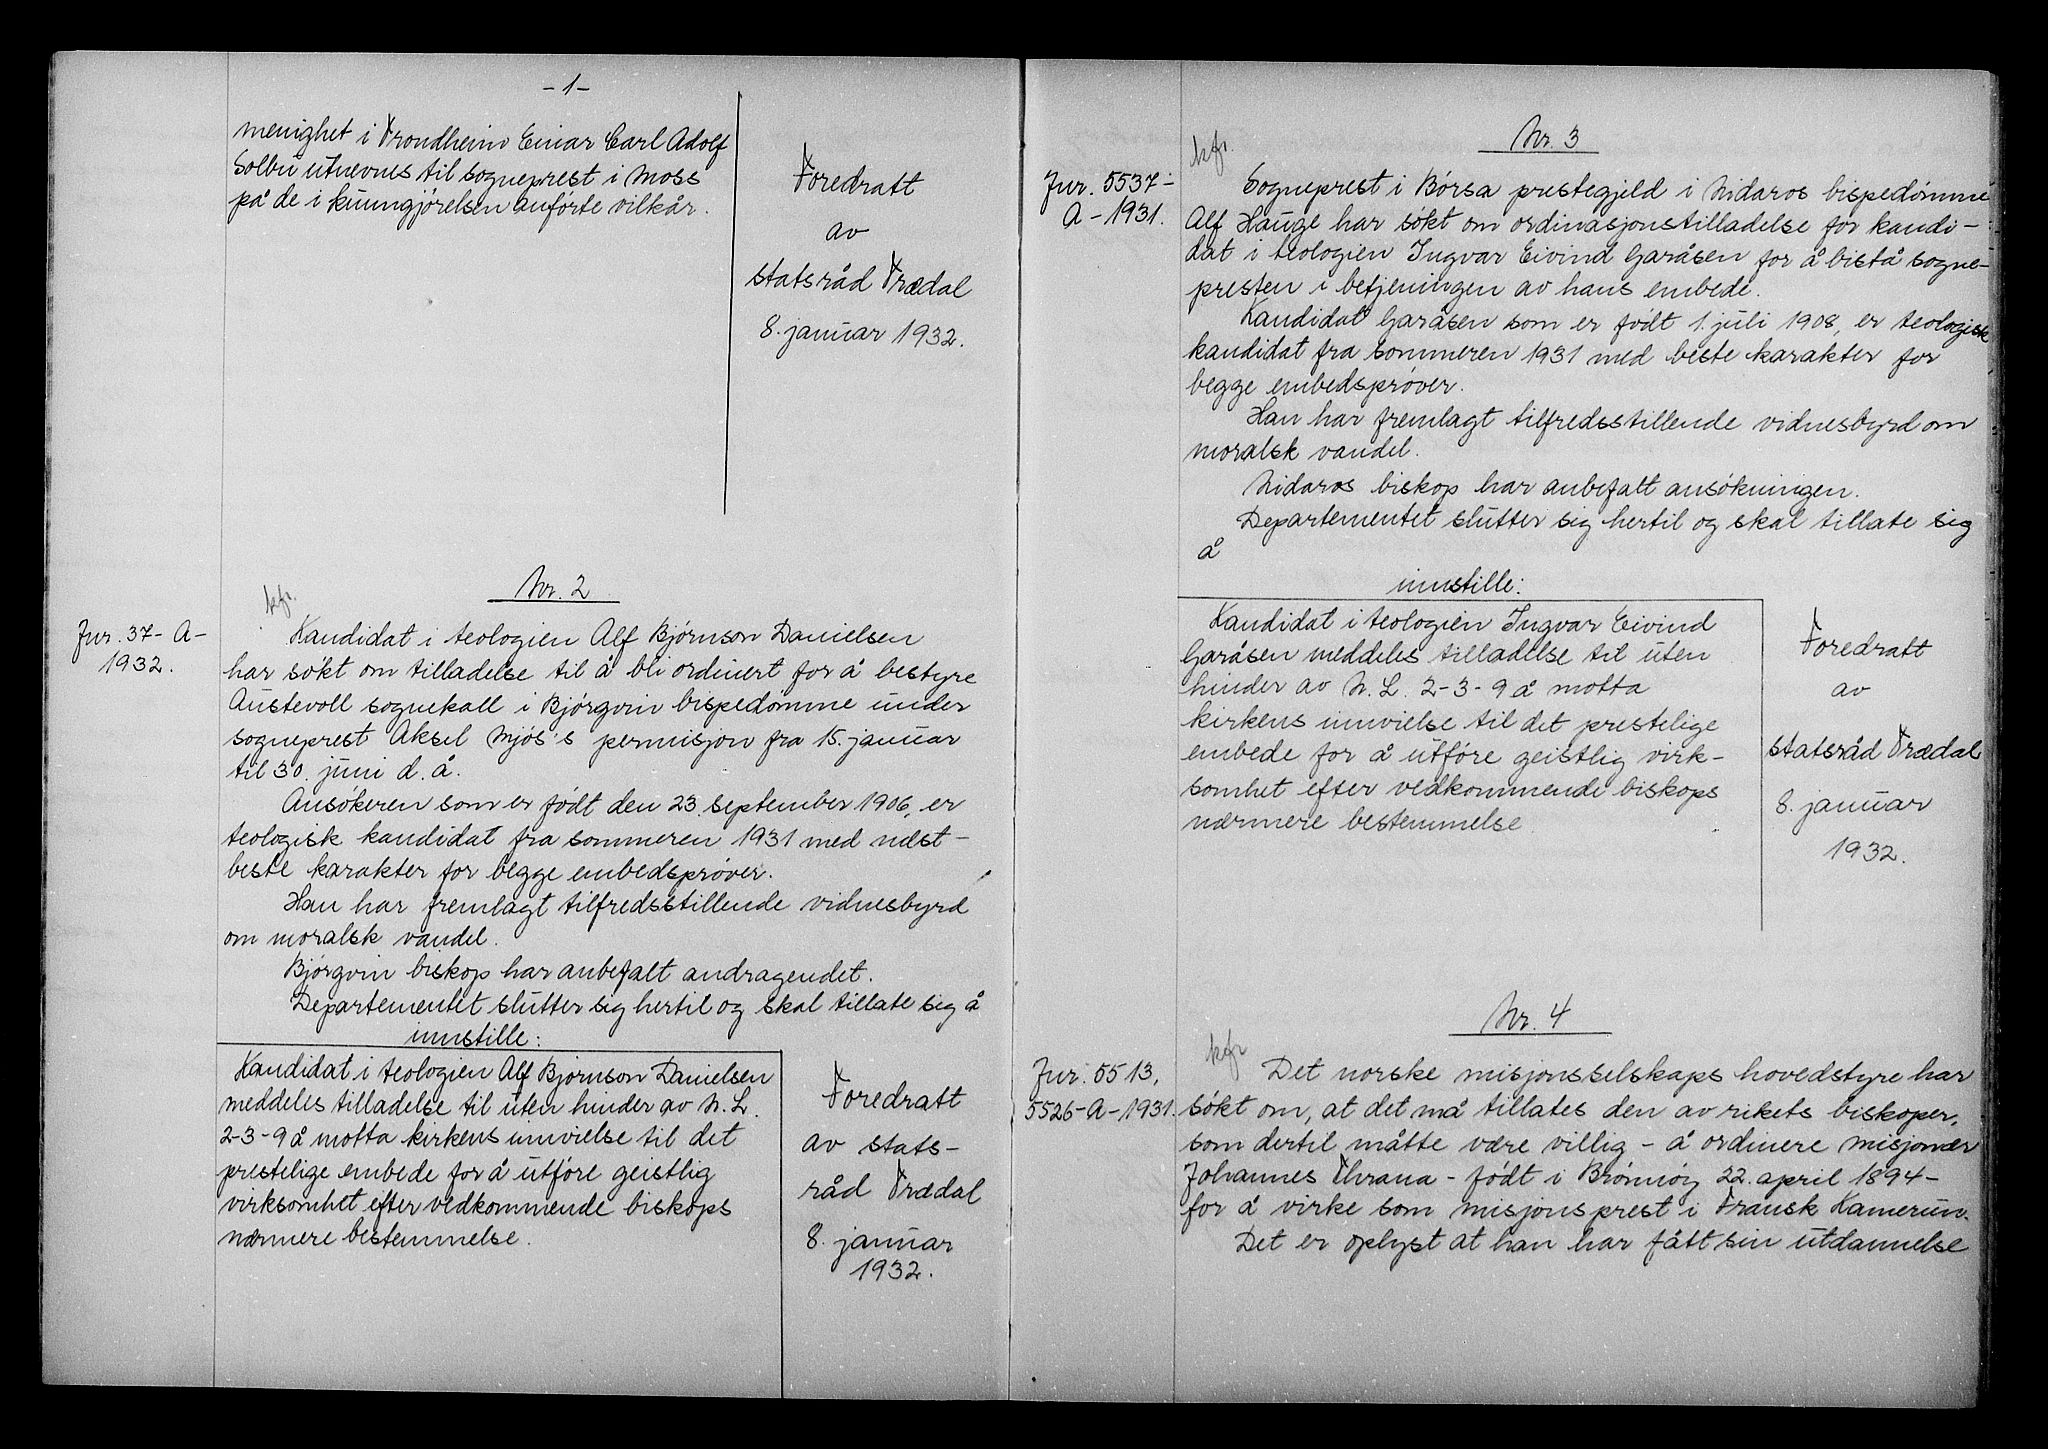 -1-
menighet i Trondheim Einar Carl Adolf
Solbu utnevnes til sogneprest i Moss
på de i kunngjørelsen anførte vilkår.
Foredratt
av
statsråd Trædal
8. januar 1932.
Nr. 2
kfr.
Jnr. 37-A-
1932.
Kandidat i teologien Alf Bjørnson Danielsen
har søkt om tilladelse til å bli ordinert for å bestyre
Austevoll sognekall i Bjørgvin bispedømme under
sogneprest Aksel Mjøs's permisjon fra 15. januar
til 30. juni d. å.
Ansøkeren som er født den 23. september 1906, er
teologisk kandidat fra sommeren 1931 med nest-
beste karakter for begge embedsprøver.
Han har fremlagt tilfredsstillende vidnesbyrd
om moralsk vandel.
Bjørgvin biskop har anbefalt andragendet.
Departementet slutter sig hertil og skal tillate sig å
innstille:
Kandidat i teologien Alf Bjørnson Danielsen
meddeles tilladelse til uten hinder av N. L.
2-3-9 å motta kirkens innvielse til det
prestelige embede for å utføre geistlig
virksomhet efter vedkommende biskops
nærmere bestemmelse.
Foredratt
av stats-
råd Trædal
8. januar
1932.
Nr. 3
kfr.
Jnr. 5537-
A-1931.
Sogneprest i Børsa prestegjeld i Nidaros bispedømme
Alf Hauge har søkt om ordinasjonstilladelse for kandi-
dat i teologien Ingvar Eivind Garåsen for å bistå sogne-
presten i betjeningen av hans embede.
Kandidat Garåsen som er født 1. juli 1908, er teologisk
kandidat fra sommeren 1931 med beste karakter for
begge embedsprøver.
Han har fremlagt tilfredsstillende vidnesbyrd om
moralsk vandel.
Nidaros biskop har anbefalt ansøkningen.
Departementet slutter sig hertil og skal tillate sig
å
innstille:
Kandidat i teologien Ingvar Eivind
Garåsen meddeles tilladelse til uten
hinder av N. L. 2-3-9 å motta
kirkens innvielse til det prestelige
embede for å utføre geistlig virk-
somhet efter vedkommende biskops
nærmere bestemmelse.
Foredratt
av
statsråd Trædal
8. januar
1932.
Nr. 4
kfr
Jnr. 5513,
5526-A-1931.
Det norske misjonsselskaps hovedstyre har
søkt om, at det må tillates den av rikets biskoper,
som dertil måtte være villig - å ordinere misjonær
Johannes Thrana - født i Brønnøy 22. april 1894 -
for å virke som misjonsprest i Fransk Kamerun.
Det er oplyst at han har fått sin utdannelse